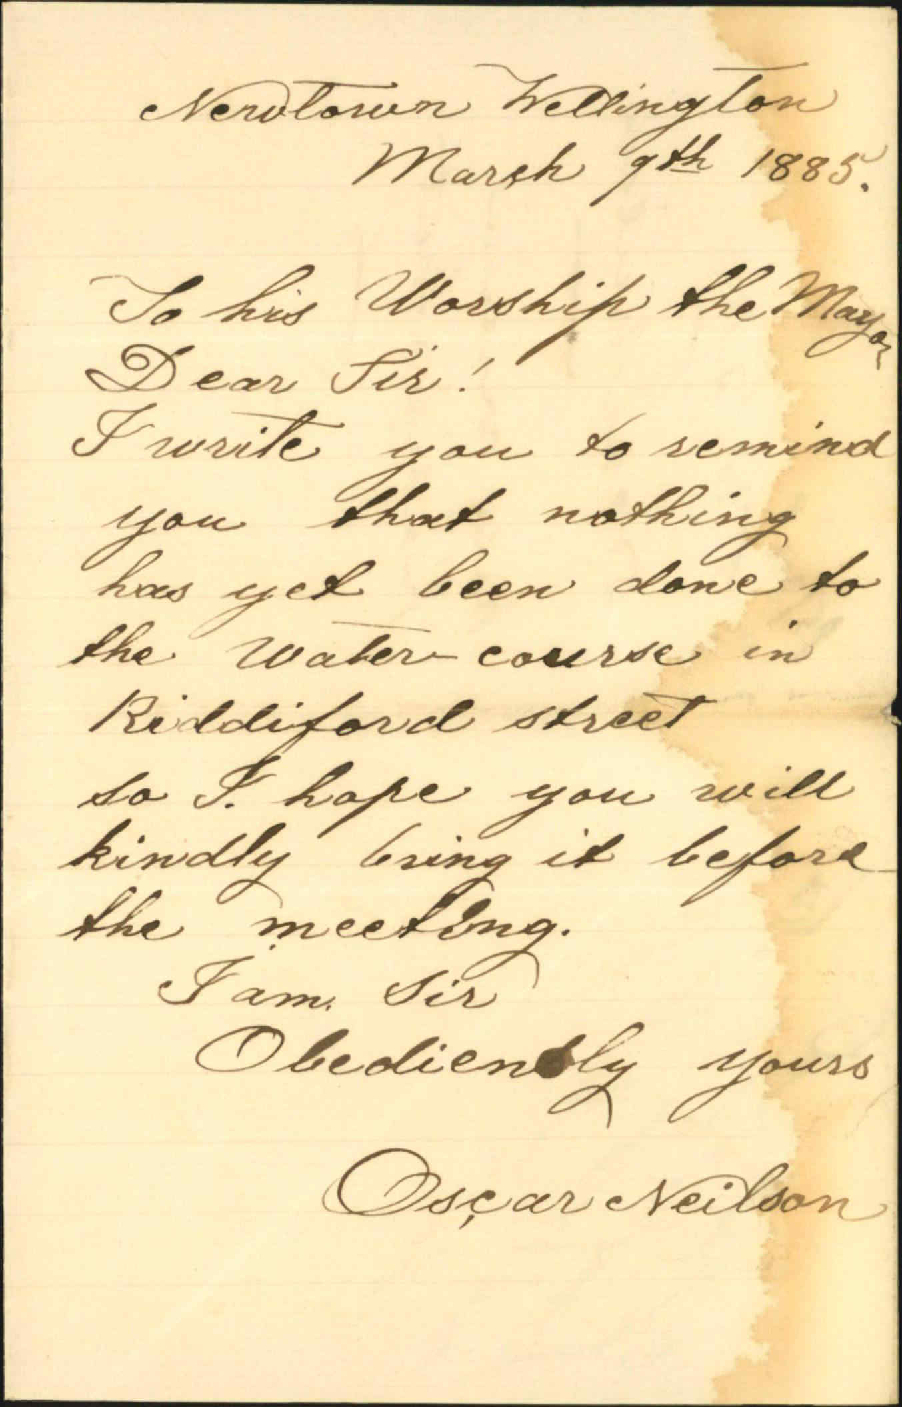 Newtown Wellington
March 9th 1885.
To his Worship the Mayor
Dear Sir!
I write you to remind
you that nothing
has yet been done to
the Water-course in
Riddiford street
so I. hope you will
kindly bring it before
the meeting.
I am. Sir
Obediently yours
Oscar Neilson